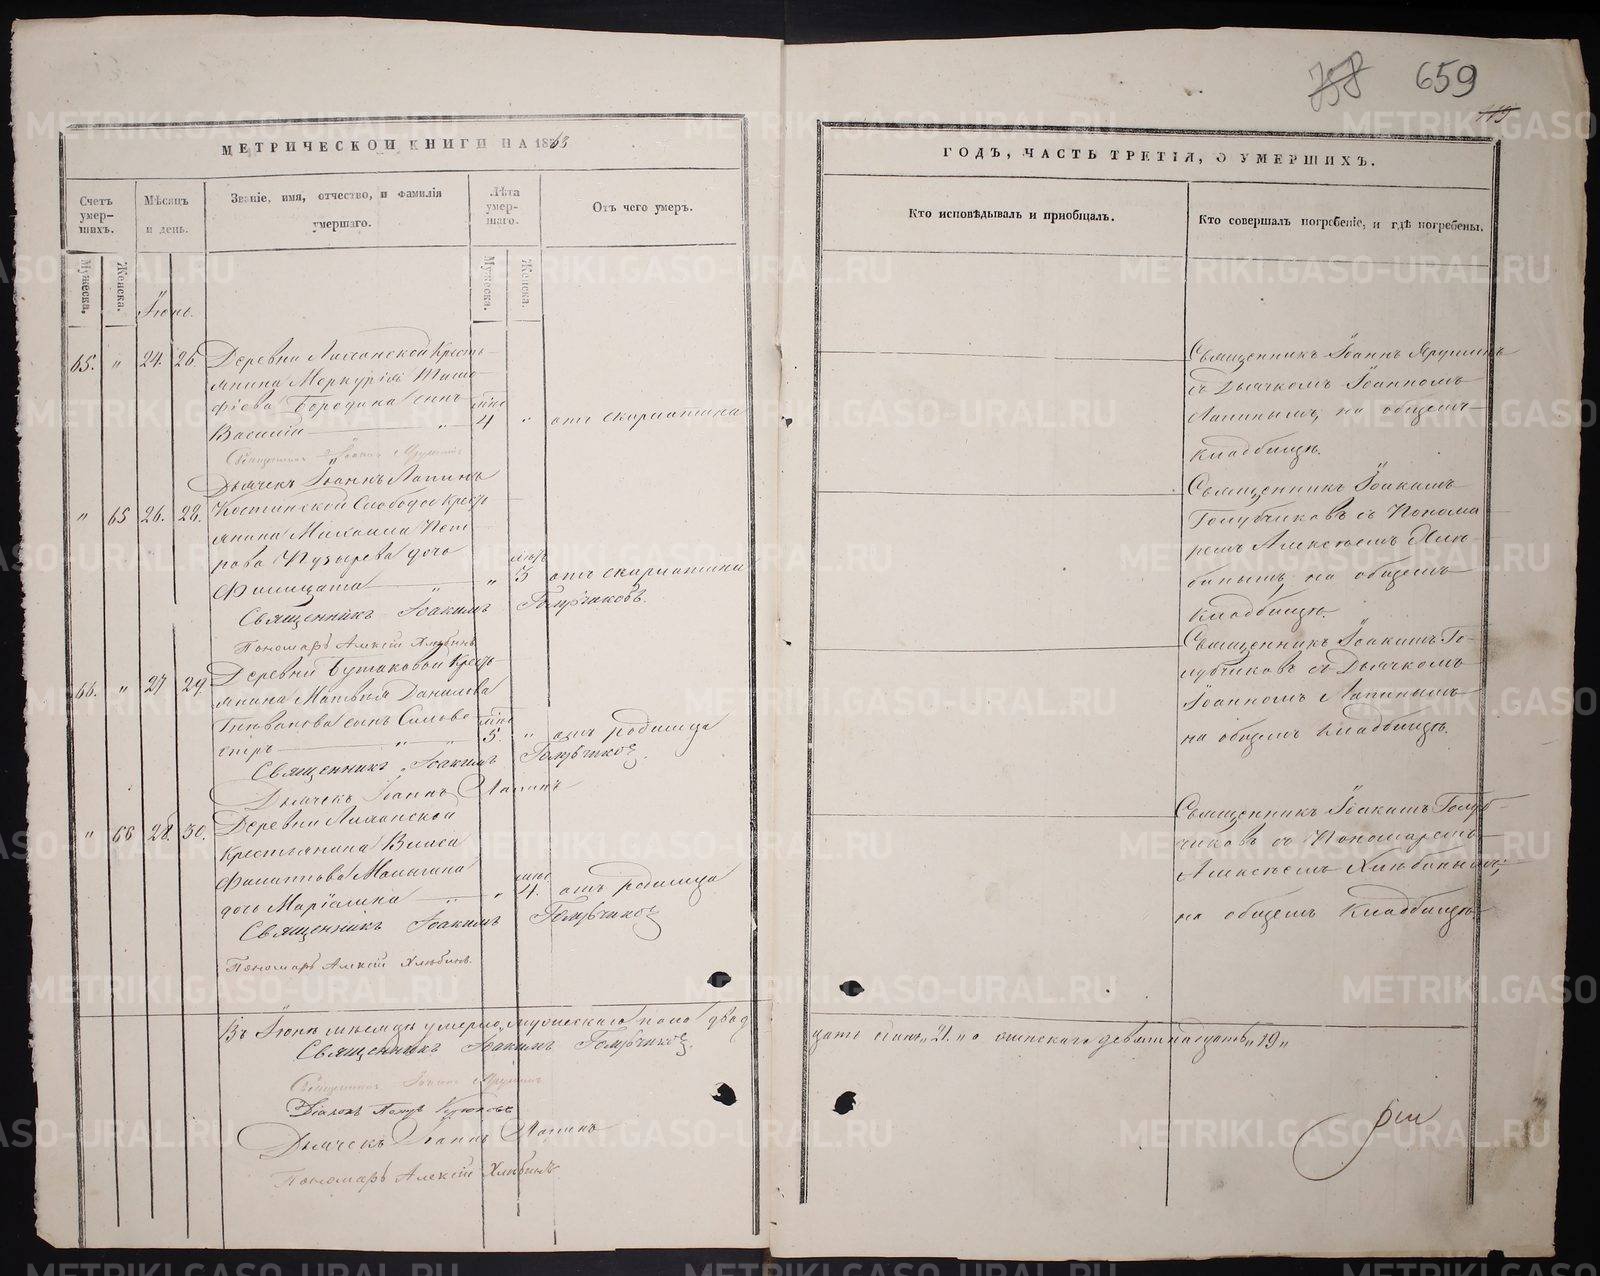 758 659
119
МЕТРИЧЕСКОЙ КНИГИ НА 1863
ГОДЪ, ЧАСТЬ ТРЕТІЯ, О УМЕРШИХЪ.
Счетъ умер-шихъ.
Мѣсяцъ и день.
Званіе, имя, отчество, и фамилія умершаго.
Лѣта умер-шаго.
Отъ чего умеръ.
Кто исповѣдывалъ и пріобщалъ.
Кто совершалъ погребеніе, и гдѣ погребены.
Мужеска.
Женска.
Мужеска.
Женска.
Іюнь.
65. " 24. 26. Деревни Ляганской Кресть-
янина Меркурія
фіева Бородина сынъ
Василій " 4 " отъ скарлатина
Священникъ Іоаннъ
съ Дьячкомъ Іоанномъ
Лапинымъ, на общемъ
кладбищѣ.
Священникъ Іоаннъ
Дьячекъ Іоаннъ Лапинъ
" 65 26. 28. Костинской Слободы Кресть
янина Михаила Пет-
рова Пузырева дочь
Филицата " " 3 отъ скарлатина
Священникъ Іоакимъ
Голубчиковъ съ Понома
ремъ Алексѣемъ Хлѣ-
бинымъ, на общемъ
кладбищѣ.
Священникъ Іоакимъ Голубчиковъ.
Пономарь Алексій Хлѣбинъ
66. " 27 29. Деревни Бутаковой Кресть
янина Матвѣя Данилова
сынъ Сильве
стръ " 5. " отъ родимца
Священникъ Іоакимъ Го-
лубчиковъ съ Дьячкомъ
Іоанномъ Лапинымъ
на общемъ кладбищѣ.
Священникъ Іоакимъ Голубчиковъ.
Дьячекъ Іоаннъ Лапинъ
" 66 28. 30. Деревни Ляганской
Крестьянина Власа
Филиппова Малыгина
дочь " " 4. отъ родимца
Священникъ Іоакимъ Голуб-
чиковъ съ Пономаремъ
Алексѣемъ Хлѣбинымъ,
на общемъ кладбищѣ.
Священникъ Іоакимъ Голубчиковъ
Пономарь Алексій Хлѣбинъ.
Въ Іюнѣ мѣсяцѣ умерло, мужескаго пола двад
цать одинъ „21. „ а женскаго девятнадцать „ 19 „
Священникъ Іоакимъ Голубчиковъ.
Священникъ Іоаннъ
Діаконъ Петръ
Дьячекъ Іоаннъ Лапинъ
Пономарь Алексій Хлѣбинъ
METRIKI.GASO-URAL.RU